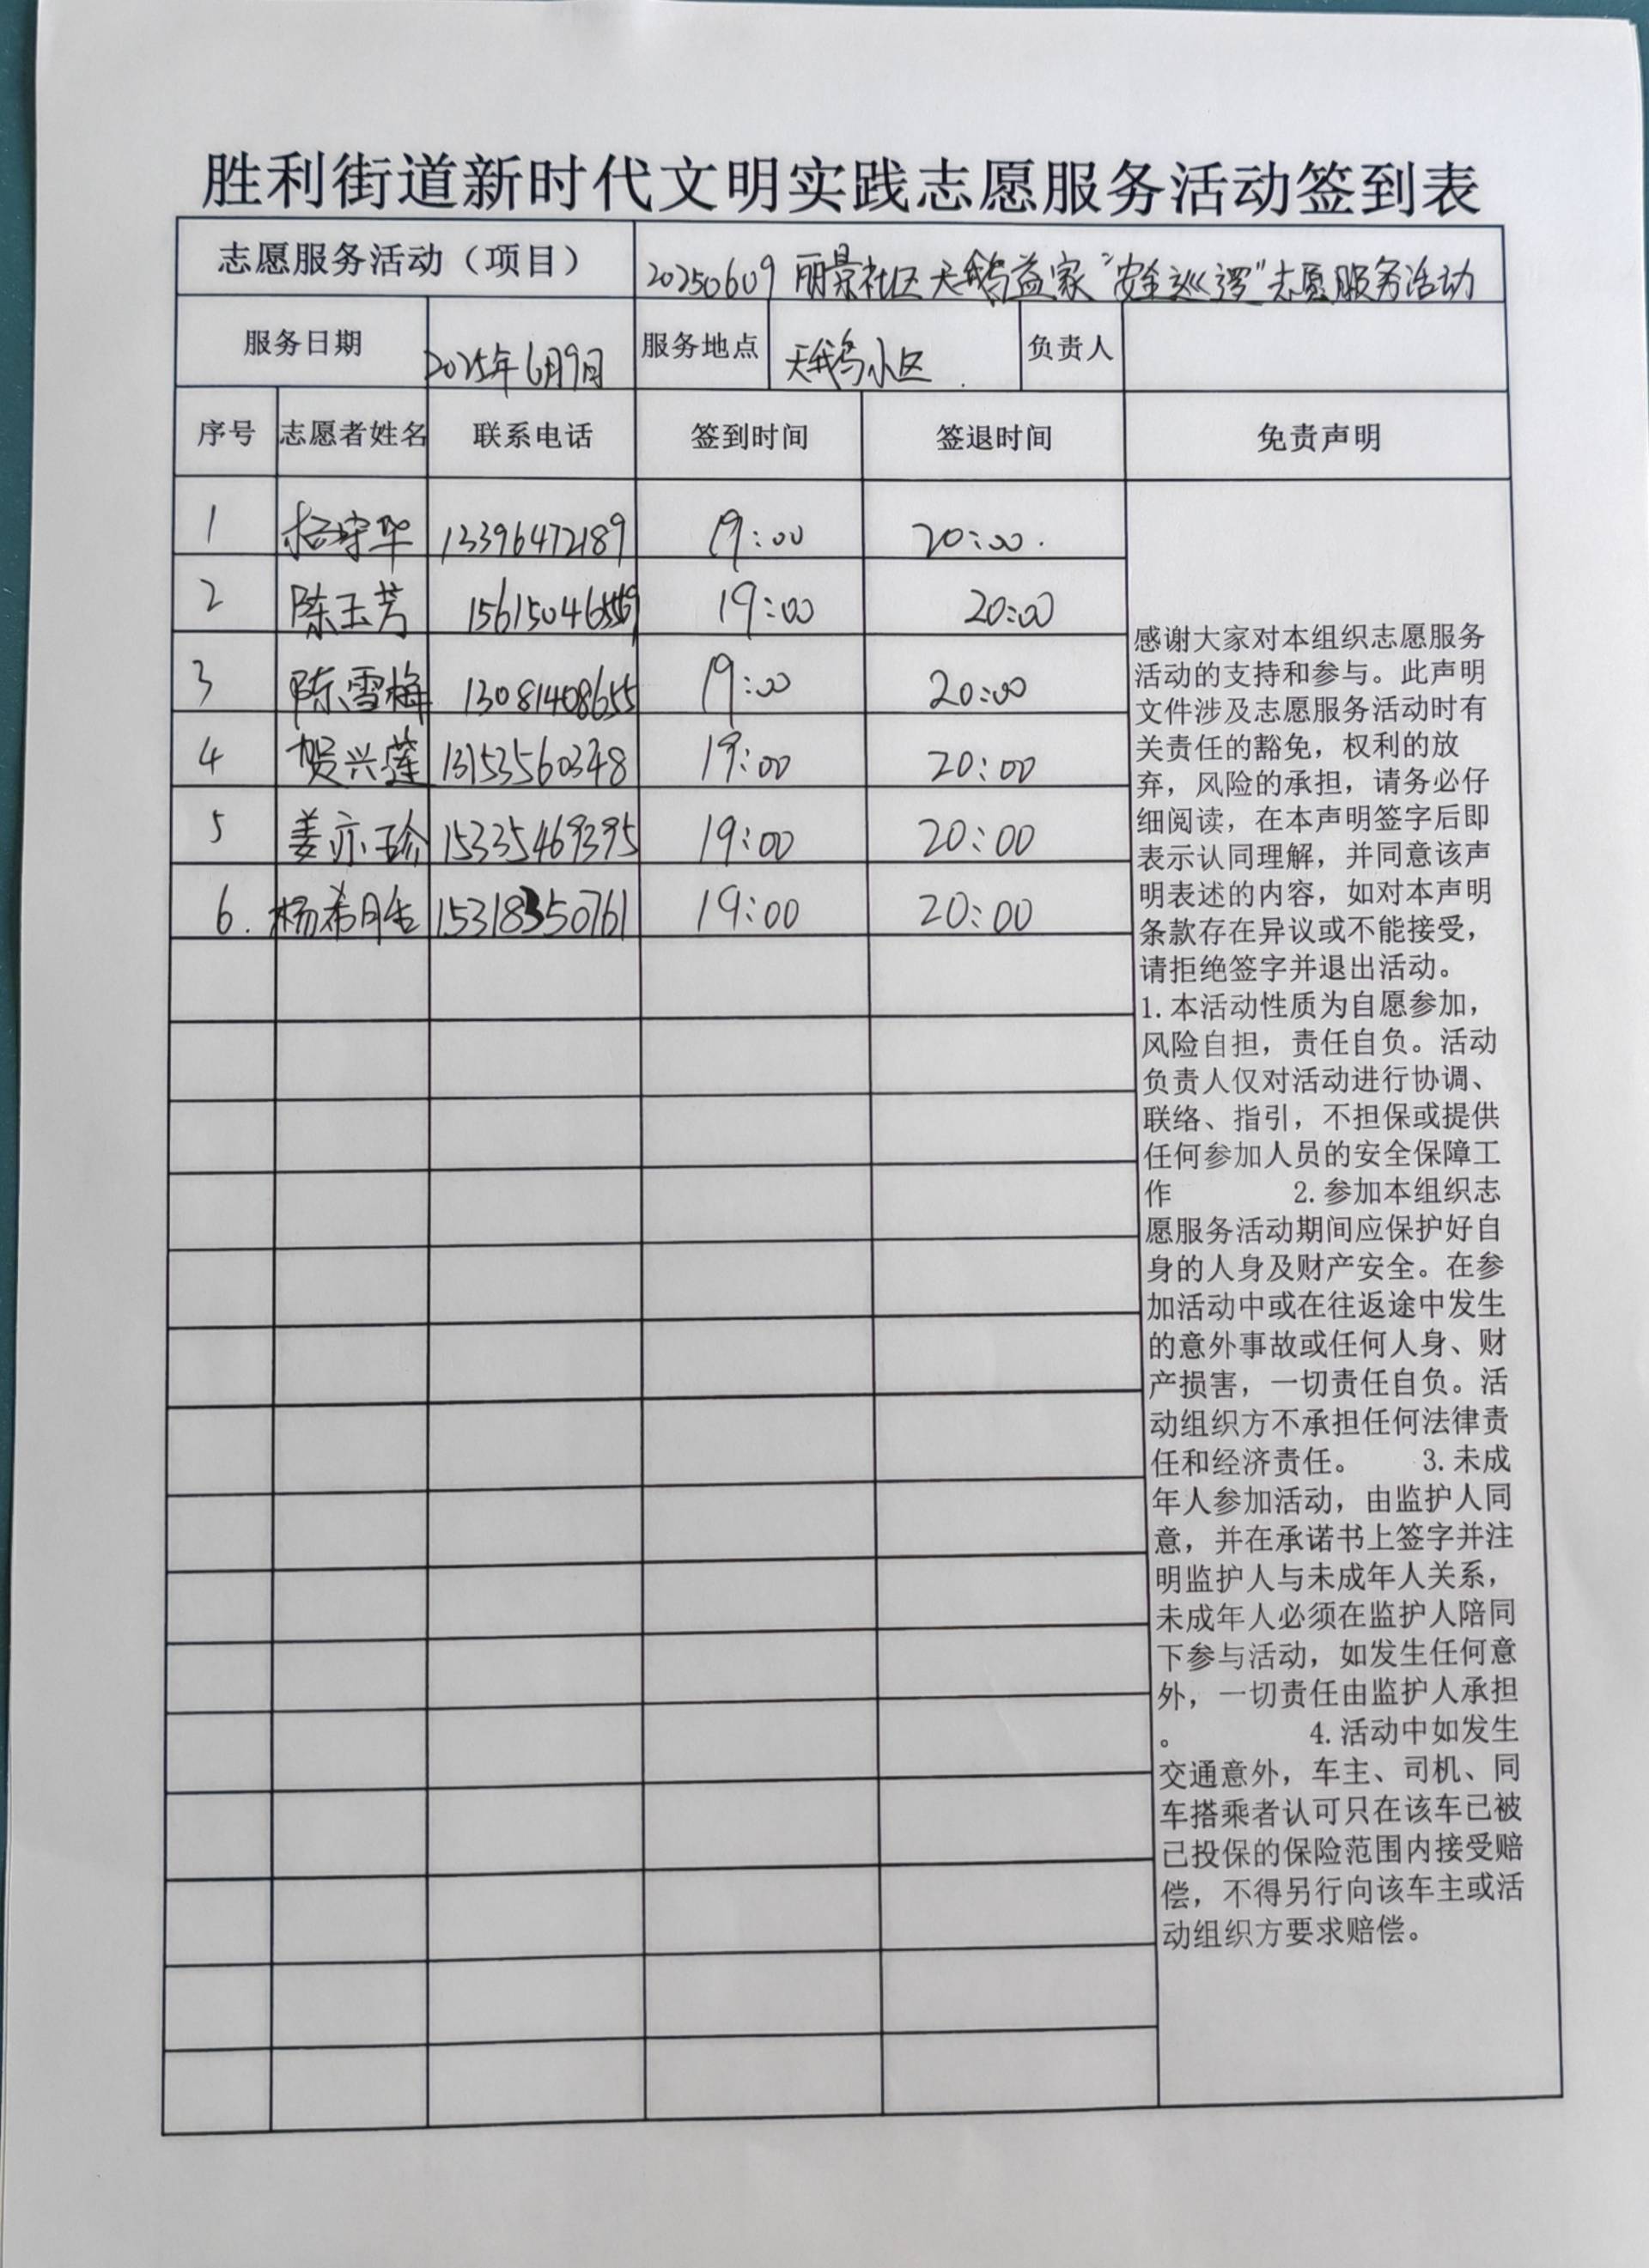 胜利街道新时代文明实践志愿服务活动签到表
志愿服务活动（项目） 20250609 丽景社区天鹅益家“安全巡逻”志愿服务活动
服务日期 2025年6月9日 服务地点 天鹅小区 负责人
序号 志愿者姓名 联系电话 签到时间 签退时间 免责声明
1 杨守华 13396472189 19:00 20:00.
2 陈玉芳 19:00 20:00
3 陈雪梅 13081408655 19:00 20:00
4 贺兴莲 13153560348 19:00 20:00
5 姜亦珍 15335469395 19:00 20:00
6. 杨希 15318350761 19:00 20:00
感谢大家对本组织志愿服务
活动的支持和参与。此声明
文件涉及志愿服务活动时有
关责任的豁免，权利的放
弃，风险的承担，请务必仔
细阅读，在本声明签字后即
表示认同理解，并同意该声
明表述的内容，如对本声明
条款存在异议或不能接受，
请拒绝签字并退出活动。
1.本活动性质为自愿参加，
风险自担，责任自负。活动
负责人仅对活动进行协调、
联络、指引，不担保或提供
任何参加人员的安全保障工
作 2.参加本组织志
愿服务活动期间应保护好自
身的人身及财产安全。在参
加活动中或在往返途中发生
的意外事故或任何人身、财
产损害，一切责任自负。活
动组织方不承担任何法律责
任和经济责任。 3.未成
年人参加活动，由监护人同
意，并在承诺书上签字并注
明监护人与未成年人关系，
未成年人必须在监护人陪同
下参与活动，如发生任何意
外，一切责任由监护人承担
。 4.活动中如发生
交通意外，车主、司机、同
车搭乘者认可只在该车已被
己投保的保险范围内接受赔
偿，不得另行向该车主或活
动组织方要求赔偿。